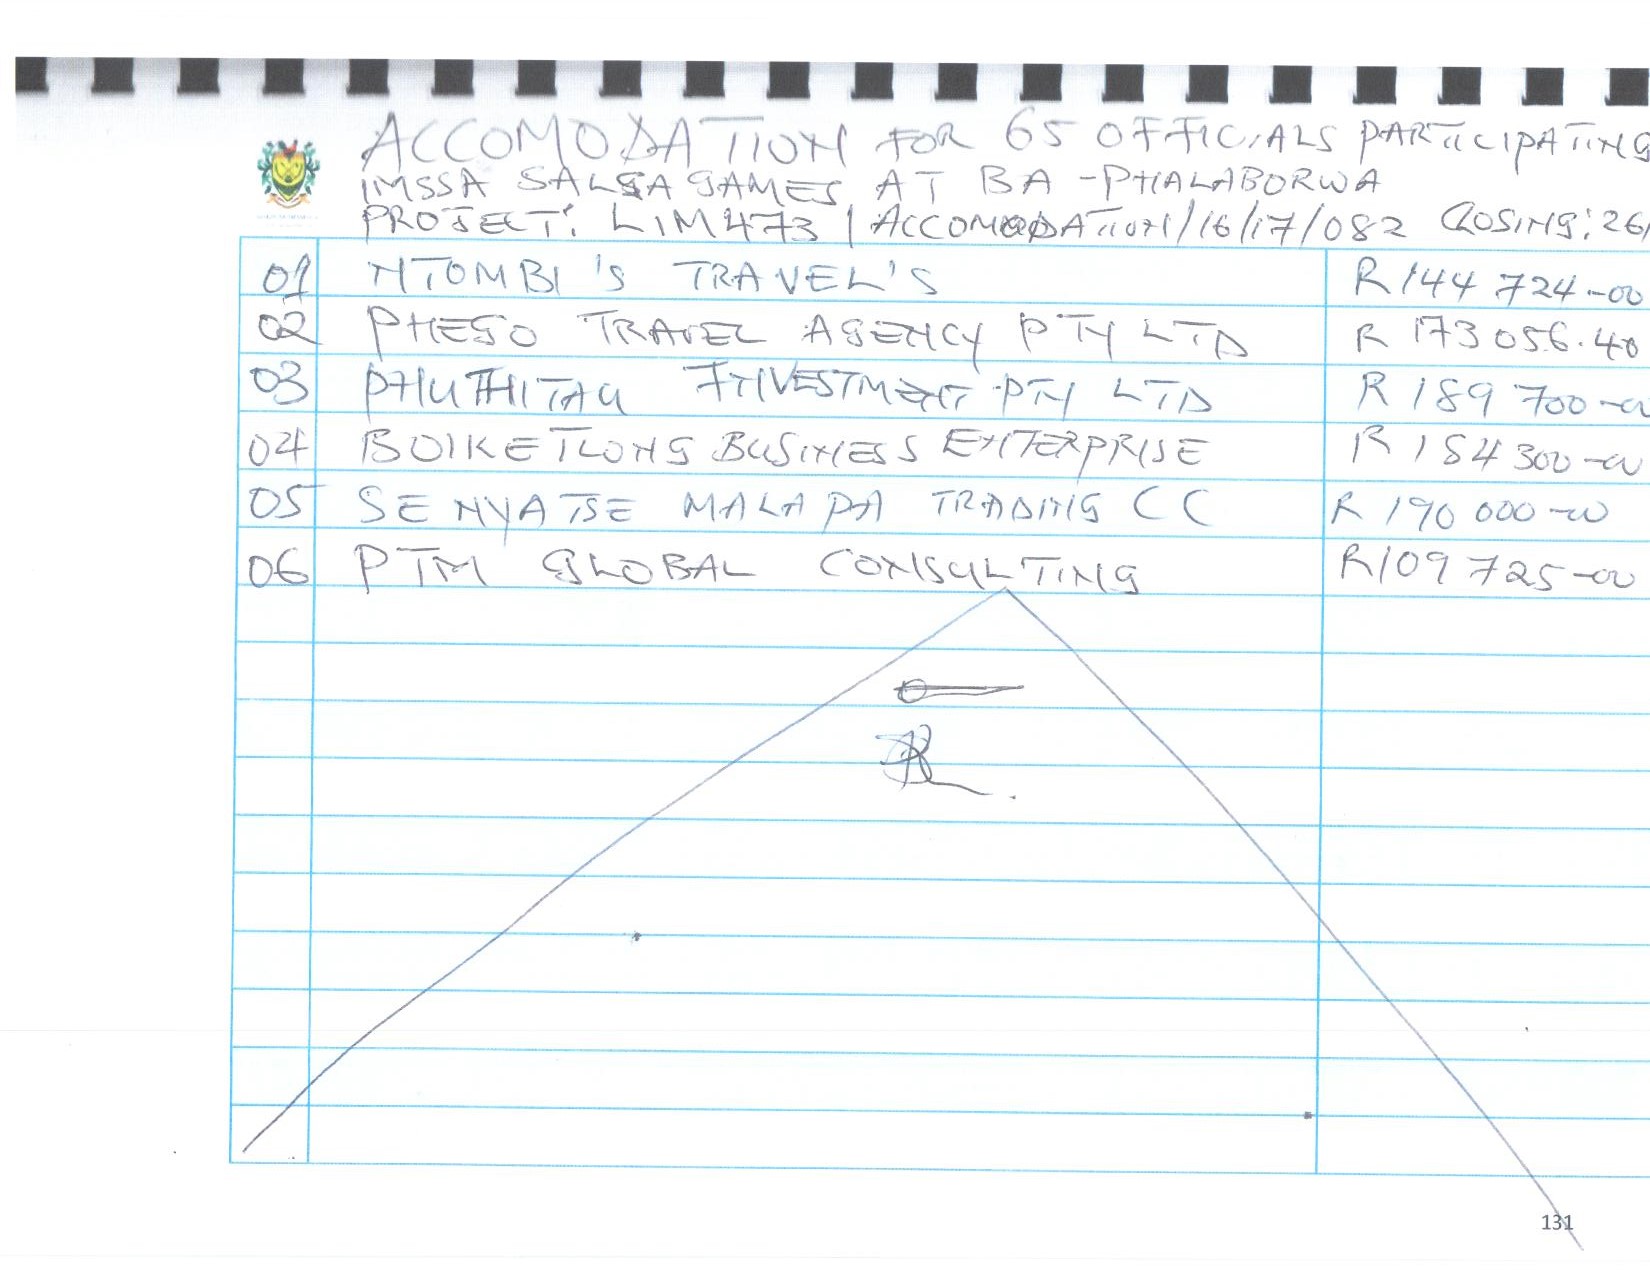 ACCOMODATION FOR 65 OFFICIALS PARTICIPATING
IMSSA SALGA GAMES AT BA-PHALABORWA
PROJECT: LIM473/ACCOMODATION/16/17/082 CLOSING: 26/
01 NTOMBI'S TRAVEL'S R144 724-00
02 PHESO TRAVEL AGENCY PTY LTD R 173 056.40
03 PHUTHITAU INVESTMENT PTY LTD R 189 700-00
04 BOIKETLONG BUSINESS ENTERPRISE R 184 300-00
05 SENYATSE MALAPA TRADING CC R 190 000-00
06 PTM GLOBAL CONSULTING R109 725-00
131